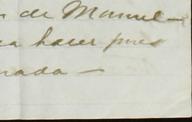 de Manuel
hacer pues
nada —